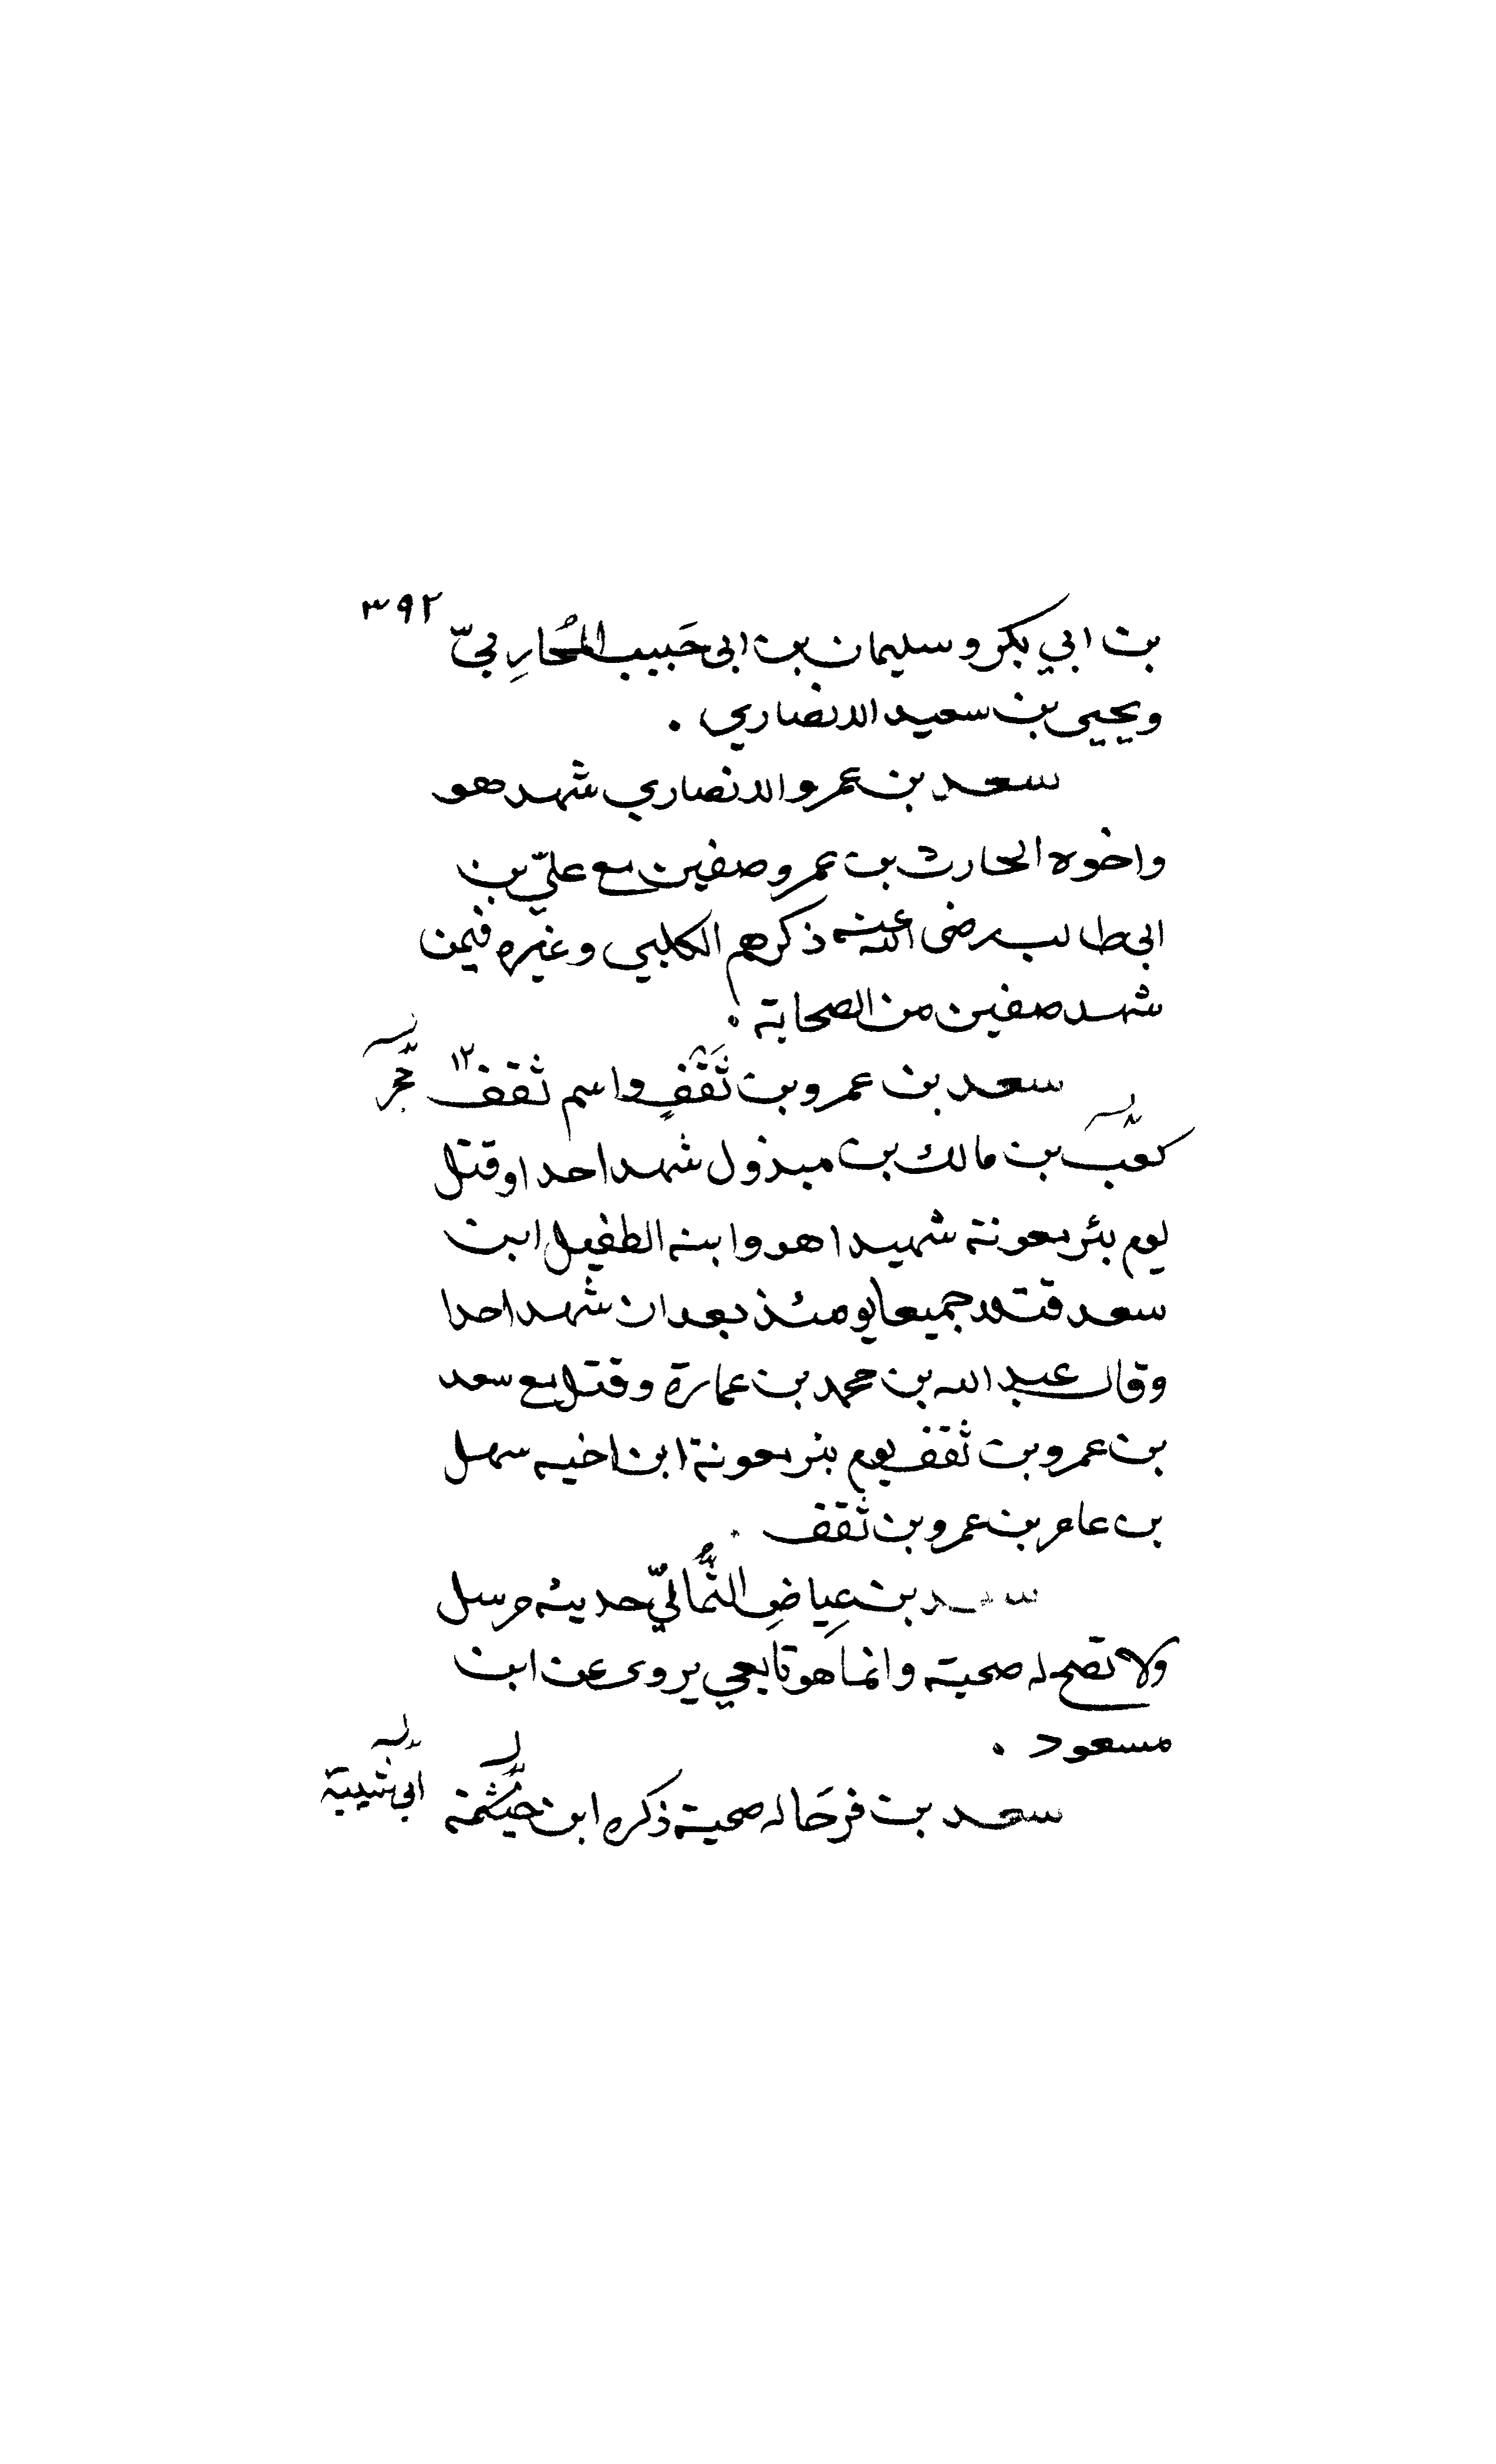 ٣٩٢
بن ابي بكر وسليمان بن ابى حَبيب المُحارِبيّ
ويحيى بن سعيد الانصاري .
سعد بن عمرو الانصاري شهد هو
واخوه الحارث بن عمرو صفين مع عليّ بن
ابى طالب رضى الله عنه ذكرهم الكلبي وغيره فيمن
شهد صفين من الصحابة .
سعد بن عمرو بن ثَقْفٍ واسم ثقف ١٢
كعب بن مالك بن مبذول شهد احدا وقتل
يوم بئر معونة شهيدا هو وابنه الطفيل ابن
سعد قتلا جميعا يومئذ بعد ان شهد احدا
وقال عبد الله بن محمد بن عمارة وقتل مع سعد
بن عمرو بن ثقف يوم بئر معونة ابن اخيه سهل
بن عامر بن عمرو بن ثقف .
سعد بن عِياضِ الثُّماليّ حديثه مرسل
ولا تصح له صحبته وانما هو تابعي يروى عن ابن
مسعود .
ابى شيبة
سعد بن فرحَا له صحبة ذكره ابن خيثمة